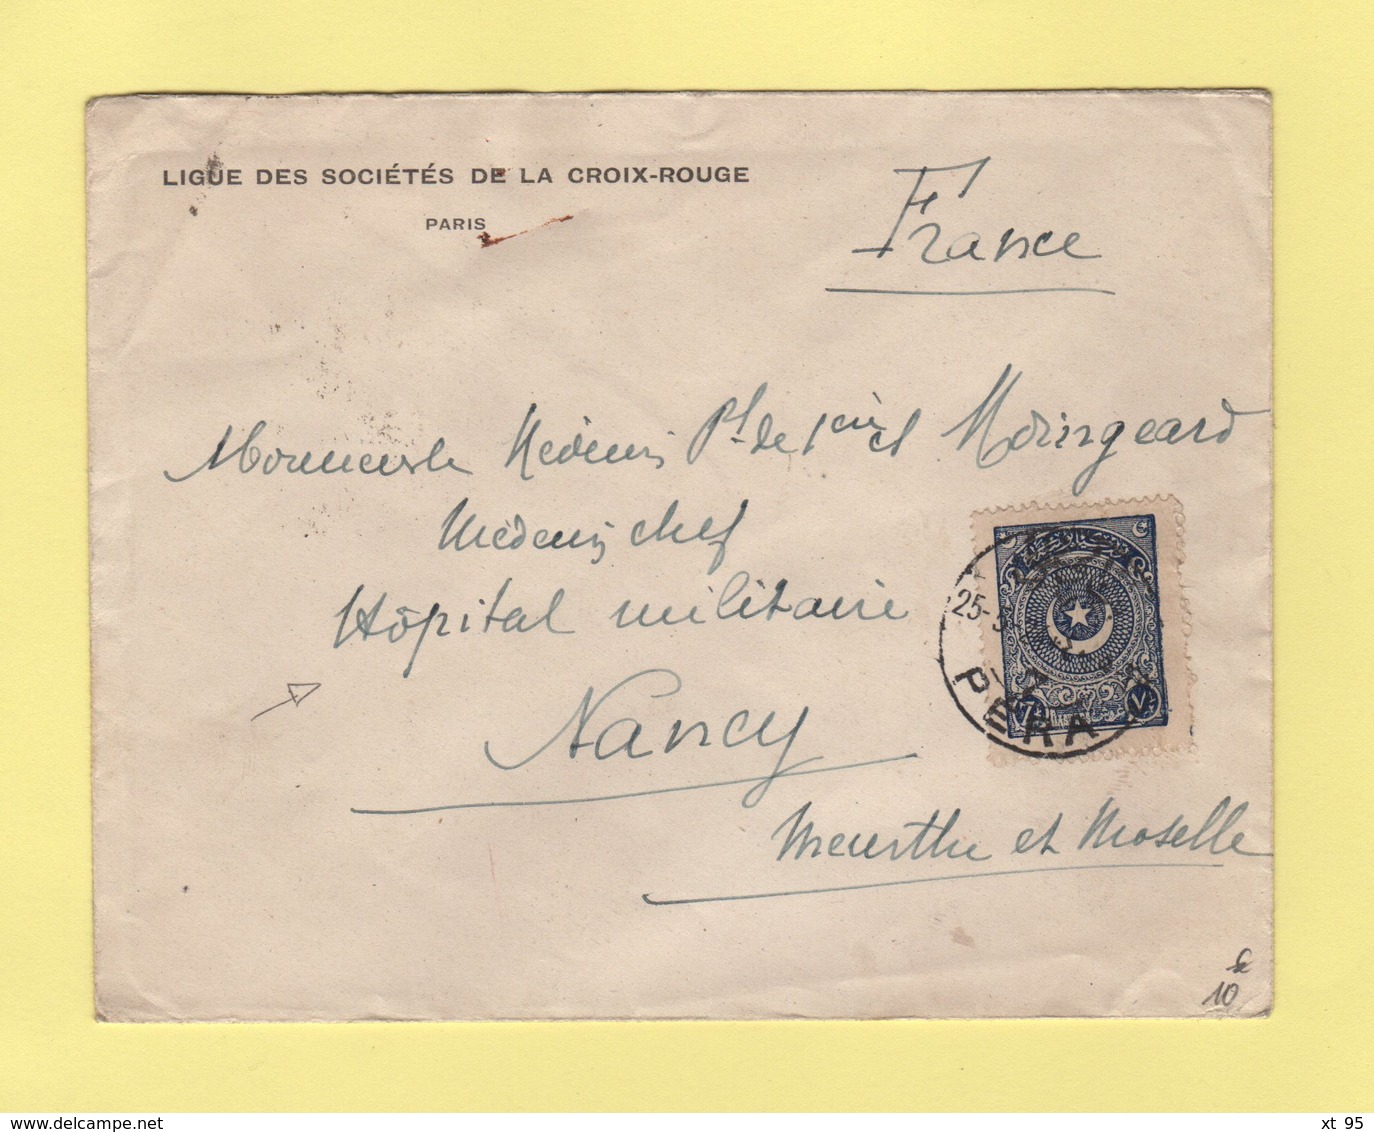 LIGUE DES SOCIÉTÉS DE LA CROIX-ROUGE
PARIS
France
Monsieur le Médecin Pal de 1ère cl Moingeard
Médecin chef
Hôpital militaire
Nancy
Meurthe et Moselle
25-3
PERA
10
www.delcampe.net
xt 95